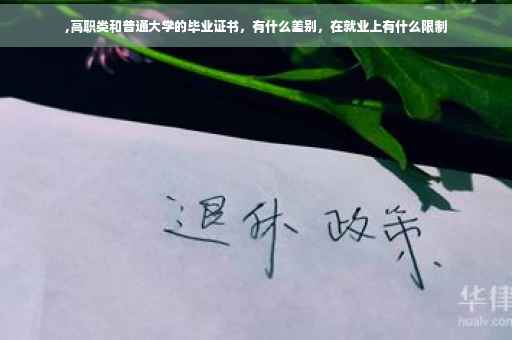 ,高职类和普通大学的毕业证书，有什么差别，在就业上有什么限制
退休 政策
华律
hualv.com